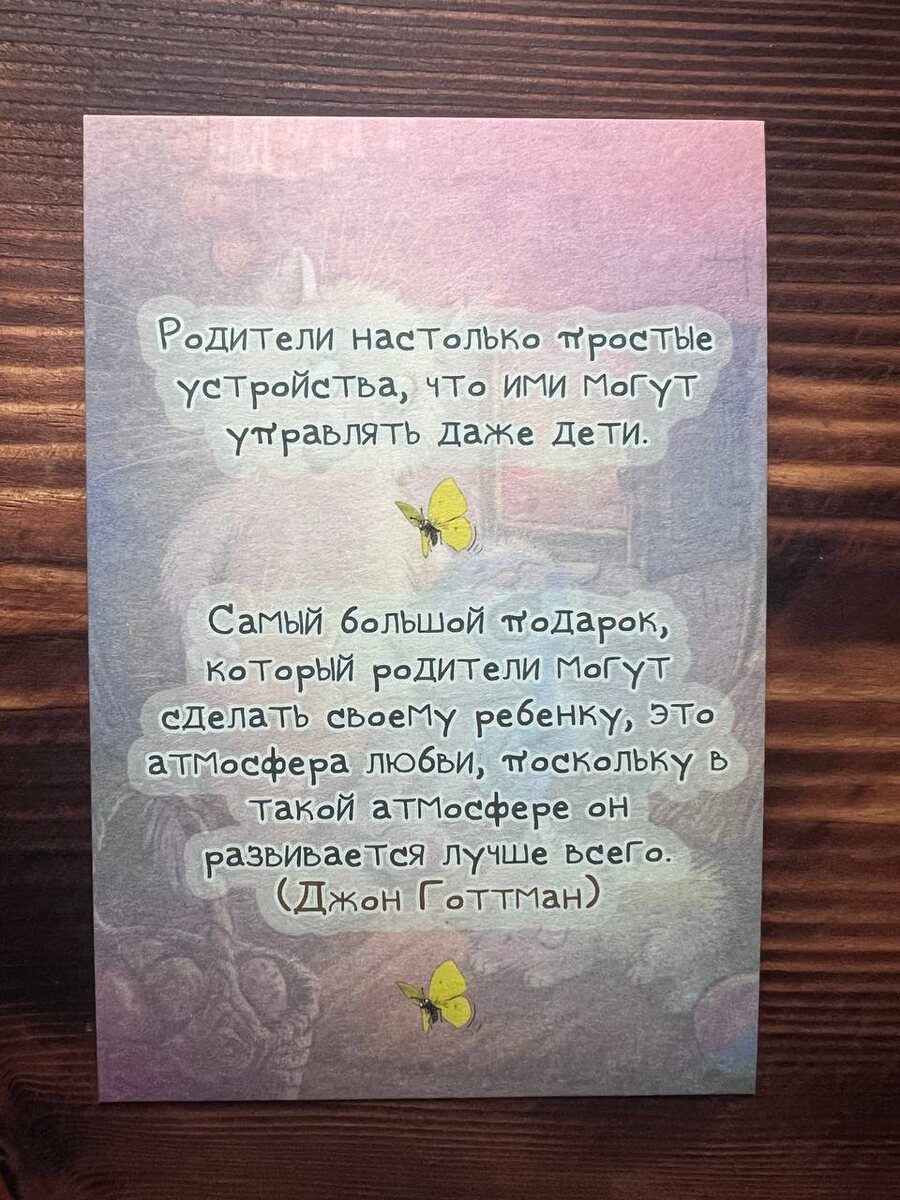 Родители настолько простые
устройства, что ими могут
управлять даже дети.
Самый большой подарок,
который родители могут
сделать своему ребенку, это
атмосфера любви, поскольку в
такой атмосфере он
развивается лучше всего.
(Джон Готтман)